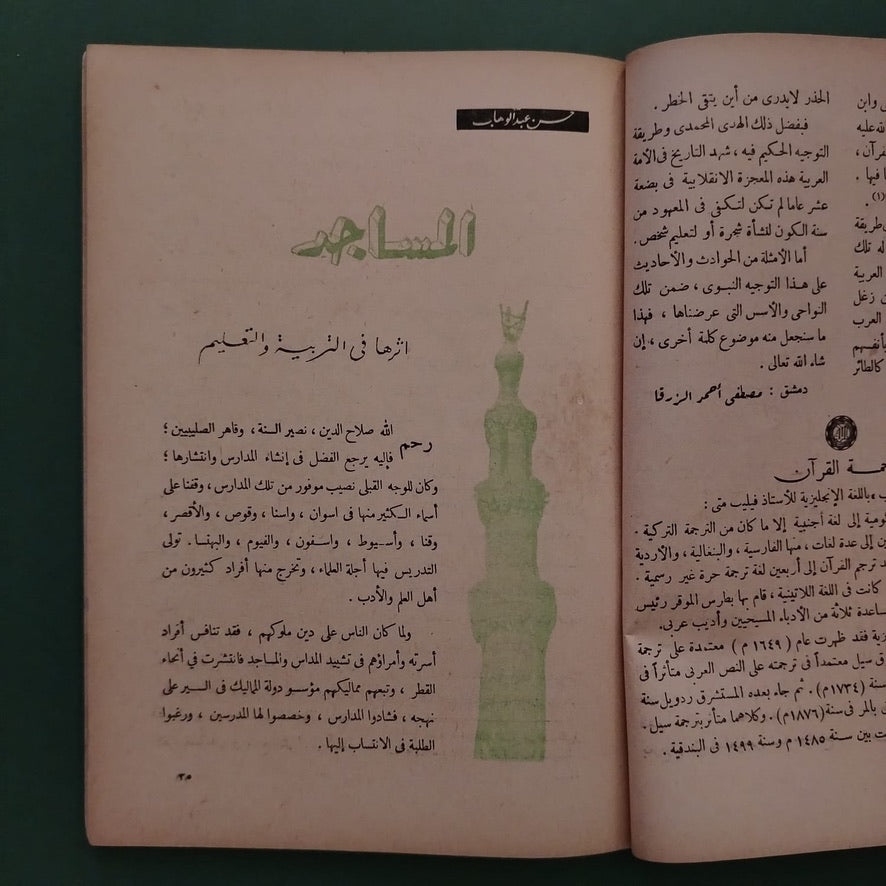 ى وابن
لله عليه
قرآن ،
ا فيها .
(١) .
طريقة
له تلك
العربية
ن زغل
العرب
بأنفسهم
كالطائر
الحذر لايدرى من أين يتقى الخطر .
فبفضل ذلك الهدى المحمدى وطريقة
التوجيه الحكيم فيه ، شهد التاريخ فى الأمة
العربية هذه المعجزة الانقلابية فى بضعة
عشر عاما لم تكن لتكفى فى المعهود من
سنة الكون لنشأة شجرة أو لتعليم شخص .
أما الأمثلة من الحوادث والأحاديث
على هذا التوجيه النبوى ، ضمن تلك
النواحى والأسس التى عرضناها ، فهذا
ما سنجعل منه موضوع كلمة أخرى ، إن
شاء الله تعالى .
دمشق : مصطفى أحمر الزرقا
جمة القرآن
ب ، باللغة الإنجليزية للأستاذ فيليب متى :
ومية إلى لغة أجنبية إلا ما كان من الترجمة التركية .
ين إلى عدة لغات ، منها الفارسية ، والبنغالية ، والأردية
د ترجم القرآن إلى أربعين لغة ترجمة حرة غير رسمية .
كانت فى اللغة اللاتينية ، قام بها بطرس الموقر رئيس
ساعدة ثلاثة من الأدباء المسيحيين وأديب عربى .
زية فقد ظهرت عام ( ١٦٤٩ م ) معتمدة على ترجمة
ق سيل معتمداً فى ترجمته على النص العربى متأثراً فى
سنة (١٧٣٤م) . ثم جاء بعده المستشرق ردويل سنة
ى بالمر فى سنة (١٨٧٦م) . وكلاهما متأثر بترجمة سيل .
ت بين سنة ١٤٨٥ م وسنة ١٤٩٩ فى البندقية .
حسن عبد الوهاب
المساجد
اثرها فى التربية والتعليم
رحم الله صلاح الدين ، نصير السنة ، وقاهر الصليبيين ؛
فإليه يرجع الفضل فى إنشاء المدارس وانتشارها ؛
وكان للوجه القبلى نصيب موفور من تلك المدارس ، وقفنا على
أسماء الكثير منها فى اسوان ، واسنا ، وقوص ، والأقصر ،
وقنا ، وأسيوط ، واسفون ، والفيوم ، والبهنسا . تولى
التدريس فيها أجلة العلماء ، وتخرج منها أفراد كثيرون من
أهل العلم والأدب .
ولما كان الناس على دين ملوكهم ، فقد تنافس أفراد
أسرته وأمراؤهم فى تشييد المداس والمساجد فانتشرت فى أنحاء
القطر ، وتبعهم مماليكهم مؤسسو دولة المماليك فى السير على
نهجه ، فشادوا المدارس ، وخصصوا لها المدرسين ، ورغبوا
الطلبة فى الانتساب إليها .
٣٥